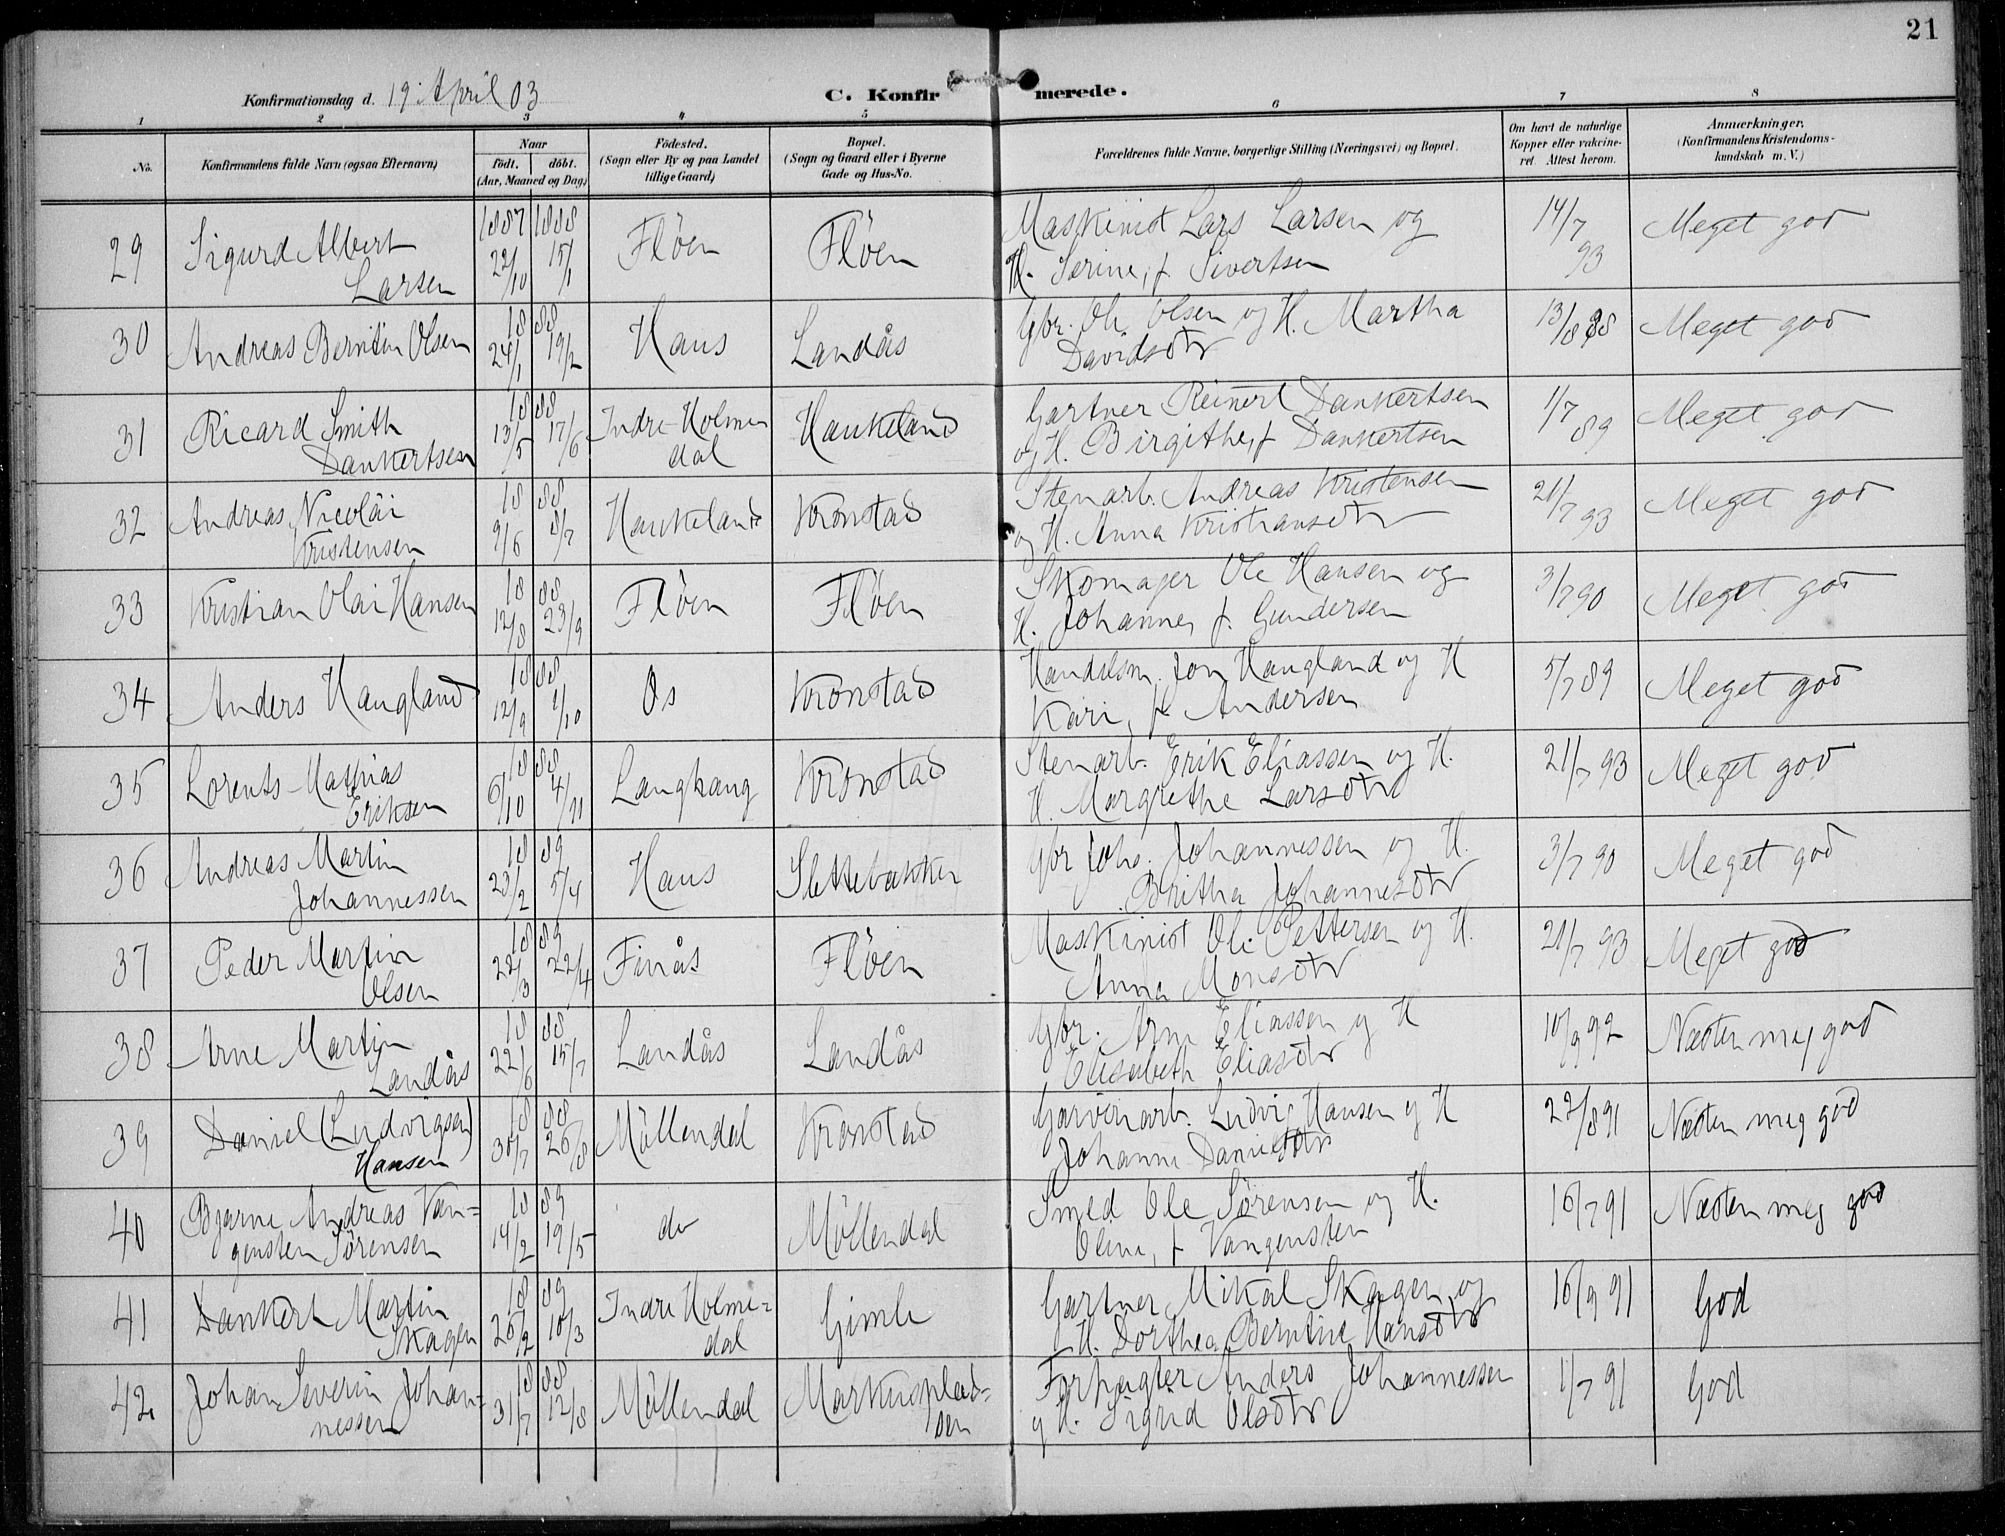 21
Konfirmationsdag d. 19. April 03
C. Konfirmerede.
1 2 3 4 5 6 7 8
No.
Konfirmandens fulde Navn (ogsaa Efternavn)
Naar
födt. döbt.
(Aar, Maaned og Dag.)
Födested.
(Sogn eller By og paa Landet
tillige Gaard.)
Bopæl.
(Sogn og Gaard eller i Byerne
Gade og Hus-No.
Forældrenes fulde Navne, borgerlige Stilling (Næringsvei) og Bopæl.
Om havt de naturlige
Kopper eller vakcine-
ret. Attest herom.
Anmærkninger.
(Konfirmandens Kristendoms-
kundskab m. V.)
29 Sigurd Albert
Larsen
1887 22/10 1888 15/1
Flöen Flöen
Maskinist Lars Larsen og
H. Serine, f. Sivertsen
14/7 93
Meget god
30 Andreas Berntin Olsen
1888 24/1 19/2
Haus Landås
Gbr. Ole Olsen og H. Martha
Davidsdtr
13/8 88
Meget god
31 Ricard Smith
Dankertsen
1888 13/5 17/6
Indre-Holmen
dal
Haukeland
Gartner Reinert Dankertsen
og H. Birgithe, f. Dankertsen
1/7 89
Meget god
32 Andreas Nicoläi
Kristensen
1888 9/6 8/7
Haukeland Kronstad
Stenarb. Andreas Kristensen
og H. Anna Kristiansdtr
21/7 93
Meget god
33 Kristian Olai Hansen
1888 12/8 23/9
Flöen Flöen
Skomager Ole Hansen og
H. Johanne, f. Gundersen
3/7 90
Meget god
34 Anders Haugland
1888 12/9 1/10
Os Kronstad
Handelsm. Jon Haugland og H
Kari, f. Andersen
5/7 89
Meget god
35 Lorents Mathias
Eriksen
1888 6/10 4/11
Langhaug Kronstad
Stenarb. Erik Eliassen og H.
H. Margrethe Larsdtr
21/7 93
Meget god
36 Andreas Martin
Johannessen
1889 23/2 5/4
Haus Slettebakken
Gbr Johs. Johannessen og H.
Britha Johannesdtr
3/7 90
Meget god
37 Peder Martin
Olsen
1889 22/3 22/4
Finås Flöen
Maskinist Ole Pettersen og H.
Anna Monsdtr
21/7 93
Meget god
38 Arne Martin
Landås
1888 22/6 15/7
Landås Landås
Gbr. Arne Eliassen og H
Elisabeth Eliasdtr
10/9 92
Næsten meg god
39 Daniel (Ludvigsen)
Hansen
1888 30/7 26/8
Möllendal Kronstad
Garveriarb. Ludvig Hansen og H
Johanne Danielsdtr
22/8 91
Næsten meg god
40 Bjarne Andreas Van=
gensten Sörensen
1889 14/2 19/5
do Möllendal
Smed Ole Sörensen og H.
Oline, f. Vangensten
16/7 91
Næsten meg god
41 Dankert Martin
Skagen
1889 20/2 10/3
Indre Holme=
dal
Gimle
Gartner Mikal Skagen og
H. Dorthea Berntine Hansdtr
16/9 91
God
42 Johan Severin Johan=
nessen
1888 31/7 12/8
Möllendal
Markusplad=
sen
Forpagter Anders Johannessen
og H. Sigrid Olsdtr
1/7 91
God